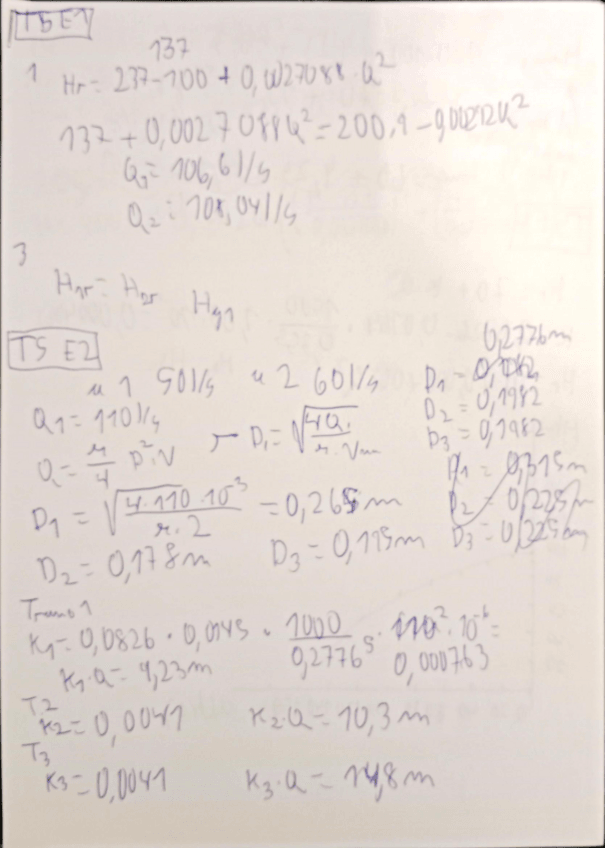 T5 E1
137
1 Hr = 237-100 + 0,0027088·Q²
137 + 0,0027088Q² = 200,1 - 0,00212Q²
Q1 = 106,6 l/s
Q2 = 108,04 l/s
3
H1r = H2r Hg1
T5 E2
u 1 50 l/s u 2 60 l/s
Q1 = 110 l/s
Q = π/4 D²·V → D1 = √(4Q1/π·Vm)
D1 = √(4·110·10⁻³/π·2) = 0,265 m
D2 = 0,178 m D3 = 0,195 m
0,2776 m
D1 = 0,1982
D2 = 0,1982
D3 = 0,1982
D1 = 0,315 m
D2 = 0,225 m
D3 = 0,225 m
Tramo 1
K1 = 0,0826 · 0,0145 · 1000/0,2776⁵ · 110²·10⁻⁶ =
0,000763
K1·Q = 9,23 m
T2
K2 = 0,0041 K2·Q = 10,3 m
T3
K3 = 0,0041 K3·Q = 14,8 m